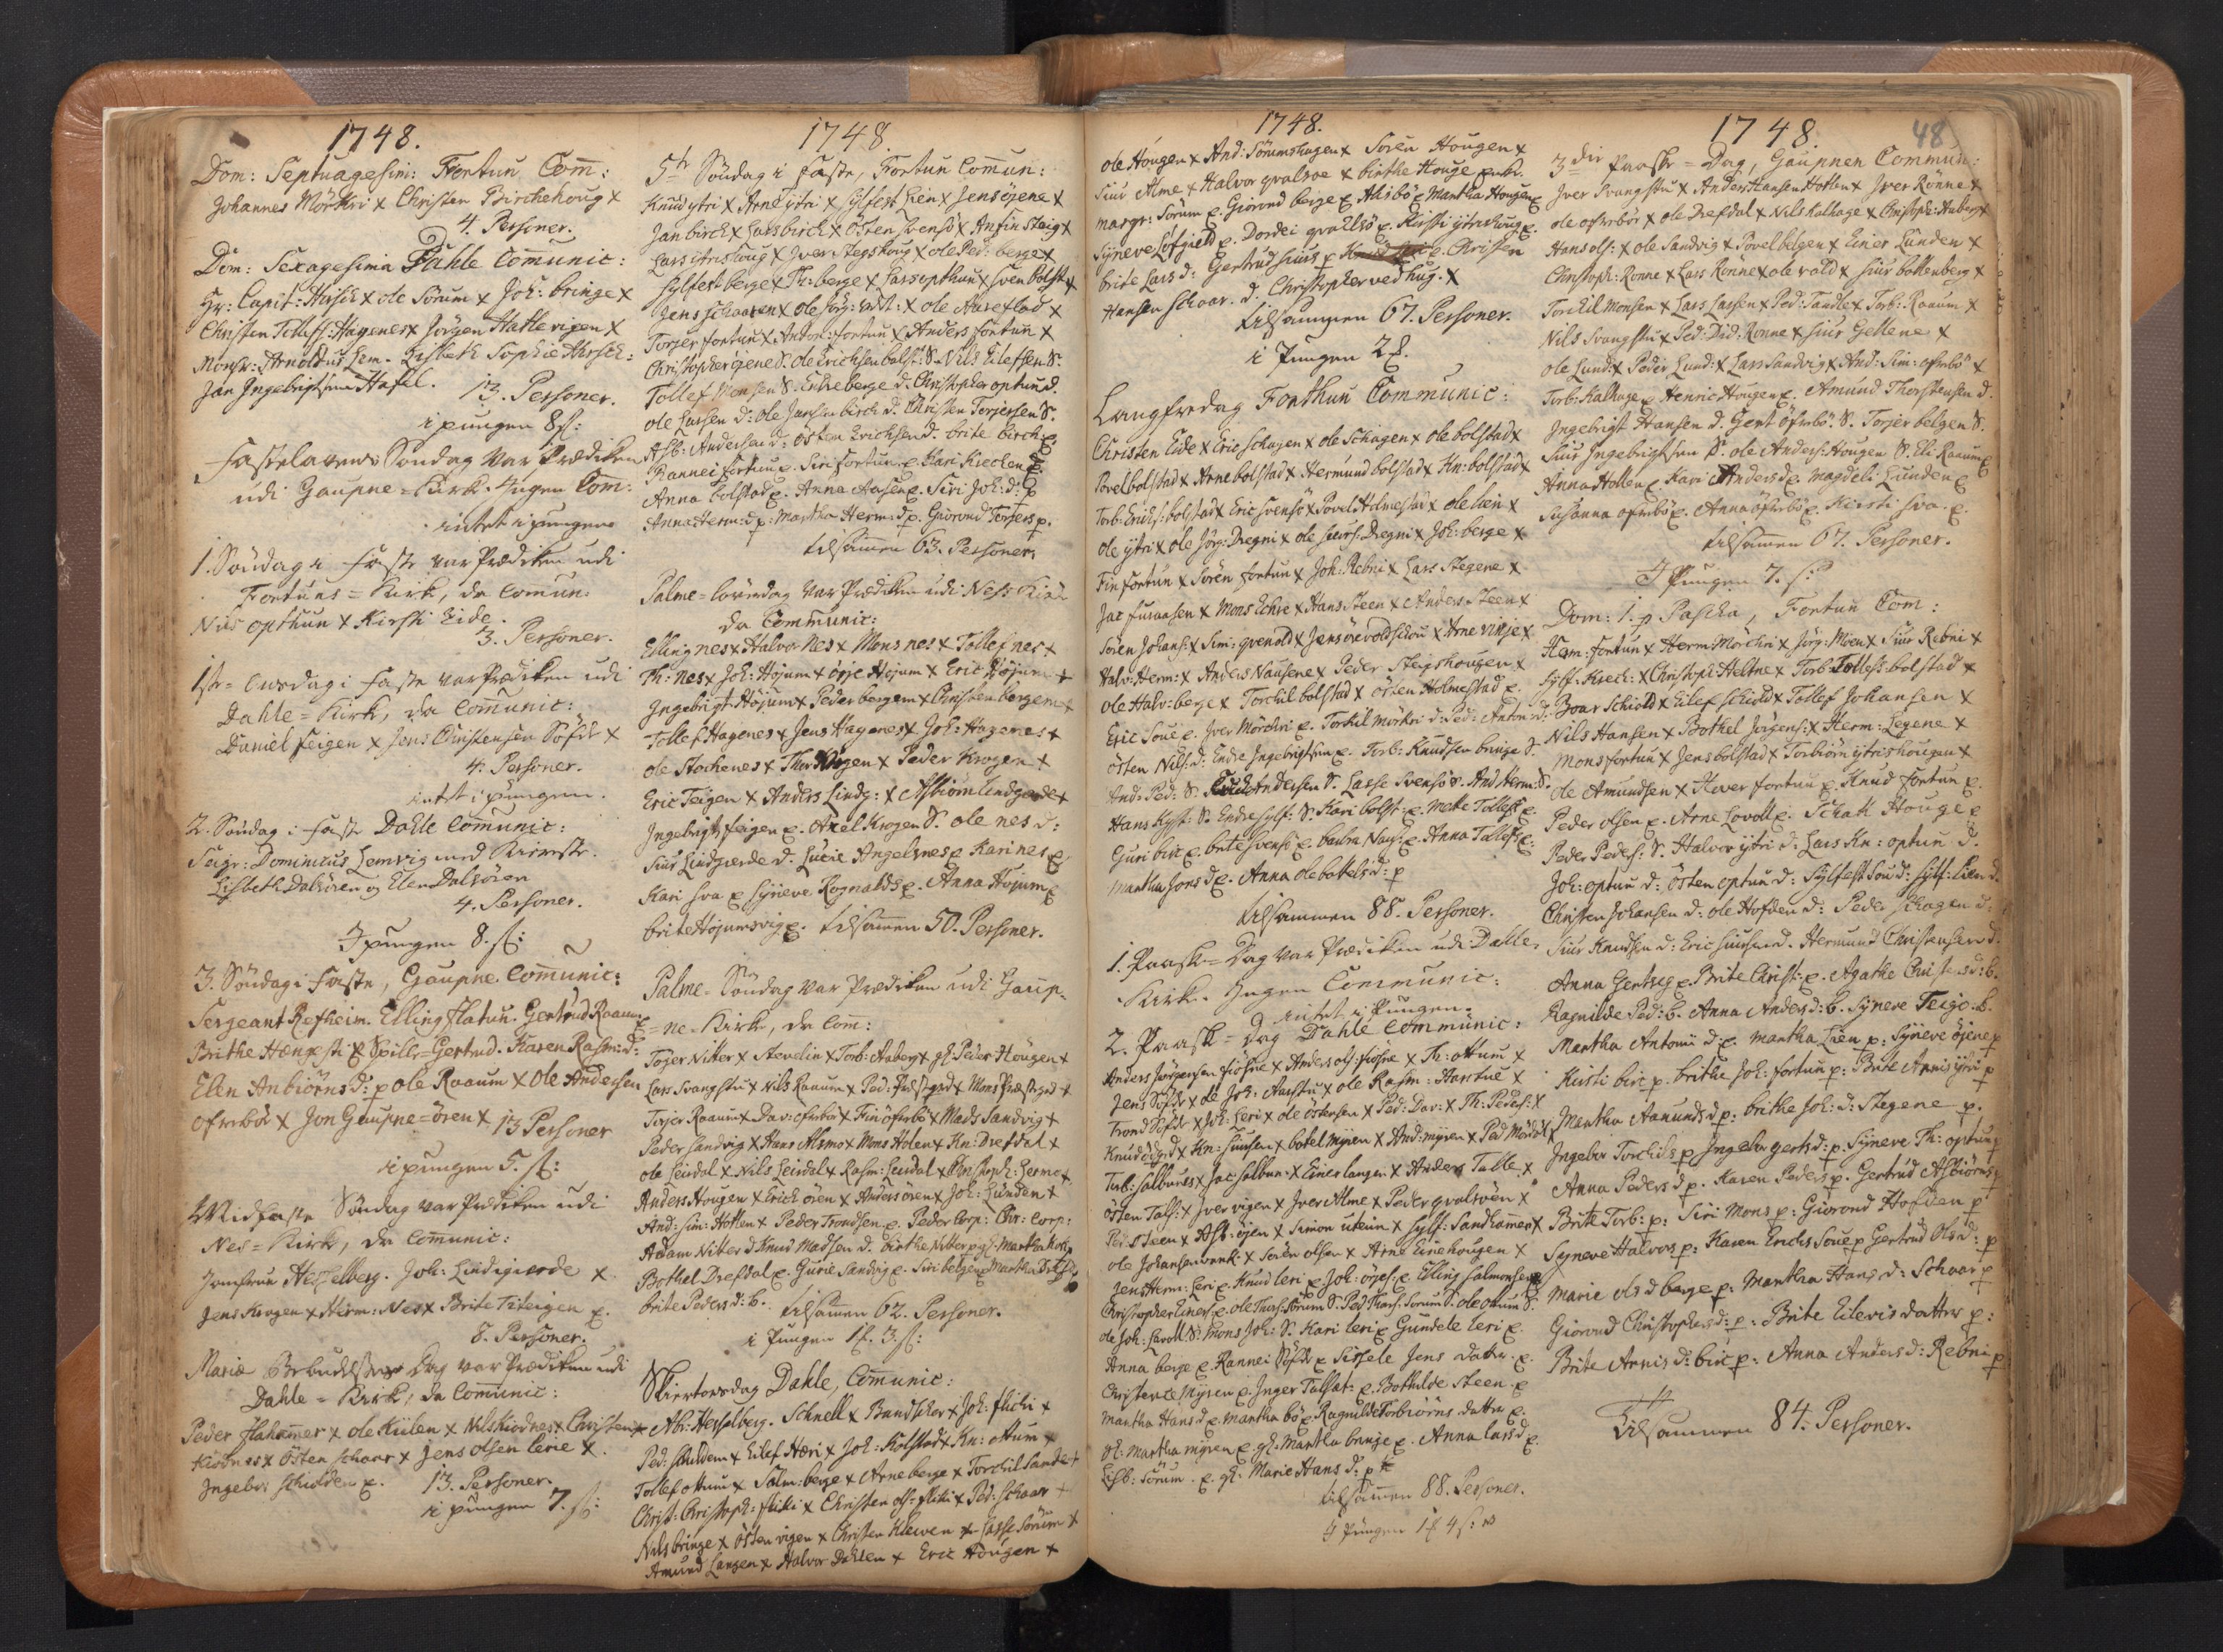 1748.
Dom: Septuagesim: Fortun Com:
Johannes Mörkri x Christen Birchehoug x
4. Personer.
Dom: Sexagesima Dahle Comunic:
Hr: Capit: Hirsch x ole Sörum x Joh: bringe x
Christen Hagenes x Jörgen Hattevigen x
Monsr: Arnoldus Lem. Lisbeth Sophie Hirsch:
Jan Ingebrigtsen Hafel. 13. Personer.
i pungen 8 s:
Fastelavens Søndag var Prædiken
udi Gaupne = Kirk. Ingen Com:
intet i pungen
1. Söndag i Faste var Prædiken udi
Fortuns = Kirk, da Comun:
Nils opthun x Kirsti Eide.
3. Personer.
1ste Onsdag i Faste var Prædiken udi
Dahle = Kirk, da Comunic:
Daniel feigen x Jens Christensen Söfde x
4. Personer.
intet i pungen.
2. Söndag i Faste Dahle Comunic:
Seigr: Dominicus Lemvig med
Lisbeth Dalsören og Elen Dalsören
4. Personer.
I pungen 8. s:
3. Söndag i Faste, Gaupne Comunic:
Sergeant Refheim. Elling flatun. Gertrud Raaum
Brithe Spille-Gertrud. Karen Rasm: d:
Elen Anbiörns d: p ole Raaum x Ole Andersen
ofrebö x Jon Gaupne=ören x 13 Personer
i pungen 5. s:
Midfaste Söndag var Prædiken udi
Nes = Kirk, da Comunic:
Jomfrue Hesselberg. Joh: Lindegierde x
Jens Krogen x Herm: Nes x Brite Teigen p.
8. Personer.
Mariæ Bebudelses Dag var Prædiken udi
Dahle = Kirk, da Comunic:
Peder flahamer x ole Kiilen x Nils Kiodnes x Christen
Kiodnes x Östen Schaar x Jens olsen Lerie x.
Ingebor Schulden p. 13. Personer.
i pungen 7. s:
1748
5te Söndag i Faste, Fortun Comun:
Knud ytri x Arne ytri x Sylfest Lien x Jens öyene x
Jan birch x Lars birch x Östen Svensö x Anfin Steig x
Lars ytriskoug x Jver Stegskoug x ole Ped: berge x
Sylfest berge x Th: berge x Lars opthun x Sven bolst: x
Jens Schaaren x ole Jörg: x ole Aureflad x
Torger fortun x Anton: fortun x Anders fortun x
Christopher öjene S. ole Erichsen bolst: S. Nils Eilefsen S.
Tollef Monsen S. berge d. Christopher optun d.
ole Larsen d: ole Jansen birch d. Christen Torjersen S.
Asb: Andersen d: Östen Erichsen d. brite birch p
Rannei fortun p. Siri fortun p. Kari Kreken p
Anna bolstad p. Anna p. Siri Joh: d: p
Anna Herm: d p: Martha Herm: d p. Giörond Torjers p.
tilsamen 63. Personer.
Palme=löverdag var Prædiken udi Ness Kirk
da Communic:
Elling nes x Halvor Nes x Mons nes x Tollef nes x
Th: Nes x Joh: Höjum x Eric Höjum x
Ingebrigt Höjum x Peder bergem x Christen bergem x
Tollef Hagenes x Jens Hagenes x Joh: Hagenes x
ole Stochenes x Krogen x Peder Krogen x
Eric Teigen x Anders Lindg: x Asbiörn Lindgierde x
Ingebrigt feigen p. Axel Krogen S. ole nes d:
Siur Lindgierde d. Lucie Angelsnes p Kari nes p
Kari Sva p Syneve Rognalds p. Anna Höjum p
brite Höjumsvig p. tilsamen 50. Personer.
Palme=Söndag var Prædiken udi Gaup=
=ne=Kirk, da Com:
Torjer Nitter x Stevelin x Torb: Aaberg x gl: Peder Hougen x
Lars Svangstu x Nils Raaum x Ped: x Mons Præstegrd x
Torjer Raaum x Dav: ofrebö x Fin öfrebö x Mads Sandvig x
Peder Sandvig x Hans Alsmo x Mons Holen x Kn: Drefdal x
ole Leirdal x Nils Leirdal x Rasm: Leirdal x Christoph: Lermo x
Anders Hougen x Erich ören x Anders ören x Joh: Lunden x
And: Sim: Hotten x Peder Trondsen p. Peder Corp: Chr: Corp:
Adam Nitter d Knud Madsen d. birthe Nitter p gl: Martha
Bothel Drefdal p. Gurie Sandvig p. Siri belgen p Martha
brite Peders d: b. tilsamen 62. Personer.
i Pungen 1 . 3. s:
Skiertorsdag Dahle, Comunic:
Ab: Hesselberg. Schnell x Bandscher x Joh: flichi x
Ped: Schulden x Eilef Hæri x Joh: Kolstad x Kn: ottum x
Tollef ottum x Salm: berge x Arne berge x Torchil Sande x
Christ: Christoph: flikki x Christen ols: flikki x Ped: Schaar x
Nils bringe x östen vigen x Christen Kleven x Lasse Sörum x
Amund Langen x Halvor Dahlen x Eric Hougen x
1748.
ole Hougen x And: Sörumshagen x Sören Hougen x
Siur Alme x Halvor qvalsöe x birthe Houge
margr: Sörum p. Giörond berge p Alisbö p Martha Hougen p
Syneve Löfgield p. Dordei qvalsö p. Kirsti ytriskoug p.
brite Lars d: Gertrud Siurs p Christen
Hansen Schaar. d. Christopher vedhug. x
tilsammen 67. Personer.
i Pungen 2 .
Langfredag Forthun Communic:
Christen Eide x Eric Schagen x ole Schagen x ole bolstad x
Povel bolstad x Arne bolstad x Hermund bolstad x Kn: bolstad x
Torb: Erichs: bolstad x Eric Svensö x Povel Holmestad x ole lien x
ole ytri x ole Jörg: Dregni x ole Siurs: Dregni x Joh: berge x
Fin fortun x Sören fortun x Joh: Rebni x Lars Stegene x
Jac furaasen x Mons Echre x Hans Steen x Anders Steen x
Sören Johans: x Sim: qvenold x Jens x Arne vinje x
Halv: Herm: x Anders Nausene x Peder Steigshougen x
ole Halv: berge x Torchil bolstad x östen Holmestad p.
Eric Soue p. Jver Mörchri p. Torchil Mörkri d. Ped: Anton: d:
östen Nils: d: Endre Ingebrigtsen p. Torb: Knudsen bringe S.
And: Ped: S. Andersen S. Lasse Svensö S. And Herm: S.
Hans S. Endre Sylf: S. Kari bolst: p. Mette Tollefs p.
Guri birc p. brite Svensö p. Naus: p. Anna Tollefs p.
Martha Jons d p. Anna ole bottels d: p
tilsammen 88. Personer.
1. Paaske=Dag var Prædiken udi Dahle
Kirk. Ingen Communic:
intet i Pungen.
2. Paask=Dag Dahle Communic:
Anders Jörgensen fiösne x Anders ols: fiösne x Th: ottum x
Jens Söfde x ole Joh: Aarstu x ole Rasm: Aarstue x
Trond Söfde x Joh: Leri x ole Östensen x Ped: Dav: x Th: Peders: x
Knud x Kn: Siursen x botel myren x And: myren x Ped
Torb: x Jac x Einer langen x Anders Talle x
östen Talf: x Jver vigen x Jver Alme x Peder qvalsöen x
Ped Steen x Asb: öjen x Simon uteim x Sylf: Sandhamer x
ole Johansen x Sören olsen x Arne Einehougen x
Jens Herm: Leri p. Knud leri p Joh: p. Elling Salmonsen p
Christopher Einers: p. ole Thars: Sörum S. Ped Thars: Sorum S. ole ottum S.
ole Joh: S. Mons Joh: S. Kari leri p Gundele leri p.
Anna berge p. Rannei Söfde p Sissele Jens datter. p.
Christence Myren p. Inger Talfat: p. Bothilde Steen. p
Martha Hans d p. Martha bö p. Ragnilde Torbiörns datter p.
gl: Martha myren p. gl: Martha bringe p. Anna lars d p.
Lisb: Sörum. p. gl: Marie Hans d: p
tilsamen 88. Personer.
I Pungen 1 4 s:
1748
48
3die Paaske=Dag, Gaupnen Commun:
Jver Svangstu x Anders Hansen Hotten x Jver Rönne x
ole ofrebör x ole Drefdal x Nils Kalhage x Christoph: Aaberg x
Hans ols: x ole Sandvig x Povel belgen x Einer Lunden x
Christoph: Ronne x Lars Rönne x ole vold x Siur bottenberg x
Torchil Monsen x Lars Larsen x Ped: Tandle x Torb: Raaum x
Nils Svangstu x Ped: Dav: Rönne x Siur Gellene x
ole Lund: x Peder Lund: x Lars Sandvig x And: Sim: ofrebö x
Torb: Kalhage x Henric Hougen p. Amund Thorstensen d.
Ingebrigt Hansen d. Gert öfrebö. S. Torjer belgen S.
Siur Ingebrigtsen S. ole Anders: Hougen S. Eli Raaum p
Anna Hotten p. Kari Anders d p. Magdeli Lunden p
Susanna ofrebö p. Anna öfrebö p. Kirsti Sva. p.
tilsamen 67. Personer.
I Pungen 7. s:
Dom: 1. p Pascha, Fortun Com:
Hem: fortun x Herm Mörchri x Jörg: Moen x Siur Rebni x
Sylf: Krech: x Christoph: Heltne x Torb: Tollefs: bolstad x
Boar Schiold x Eilef Schiold x Tollef Johansen x
Nils Hansen x Bothel Jörgens: x Herm: Legene x
Mons fortun x Jens bolstad x Torbiörn ytriskougen x
ole Amundsen x Haver fortun p. Knud fortun p.
Peder olsen p. Arne Lovoll p. Houge p
Peder Peders: S. Halvor ytri d: Lars Kn: optun d.
Joh: optun d: östen optun d: Sylfest Sou d: Sylf: Lien d.
Christen Johansen d: ole Hofden d: Peder Schagen d:
Siur Knudsen d: Eric Siursen d. Hermund Christensen d.
Anna Gerts p. Brite Christ: p. Agathe Christens d: b.
Ragnilde Ped: b. Anna Anders d: b. Syneve Teige: b.
Martha Antoni d p. Martha Lien p: Syneve öjene p
Kirsti birc p. brithe Joh: fortun p: Brite Arnis ytri p
Martha Aamunds d p: brithe Joh: d: Stegene p.
Ingebor Torchils p Ingebor gerts d: p: Syneve Th: optun p
Anna Peders d p. Karen Peders p. Gertrud Asbiörns p
Brite Torb: p: Siri Mons p: Giörond Hofden p
Syneve Halvors p: Karen Erichs Soue p Gertrud Ols d: p
Marie ols d berge p: Martha Hans d: Schaar p
Giörond Christophers d: p: Brite Eilevis datter p:
Brite Arnis d: birc p: Anna Anders d: Rebni p
Tilsammen 84. Personer.